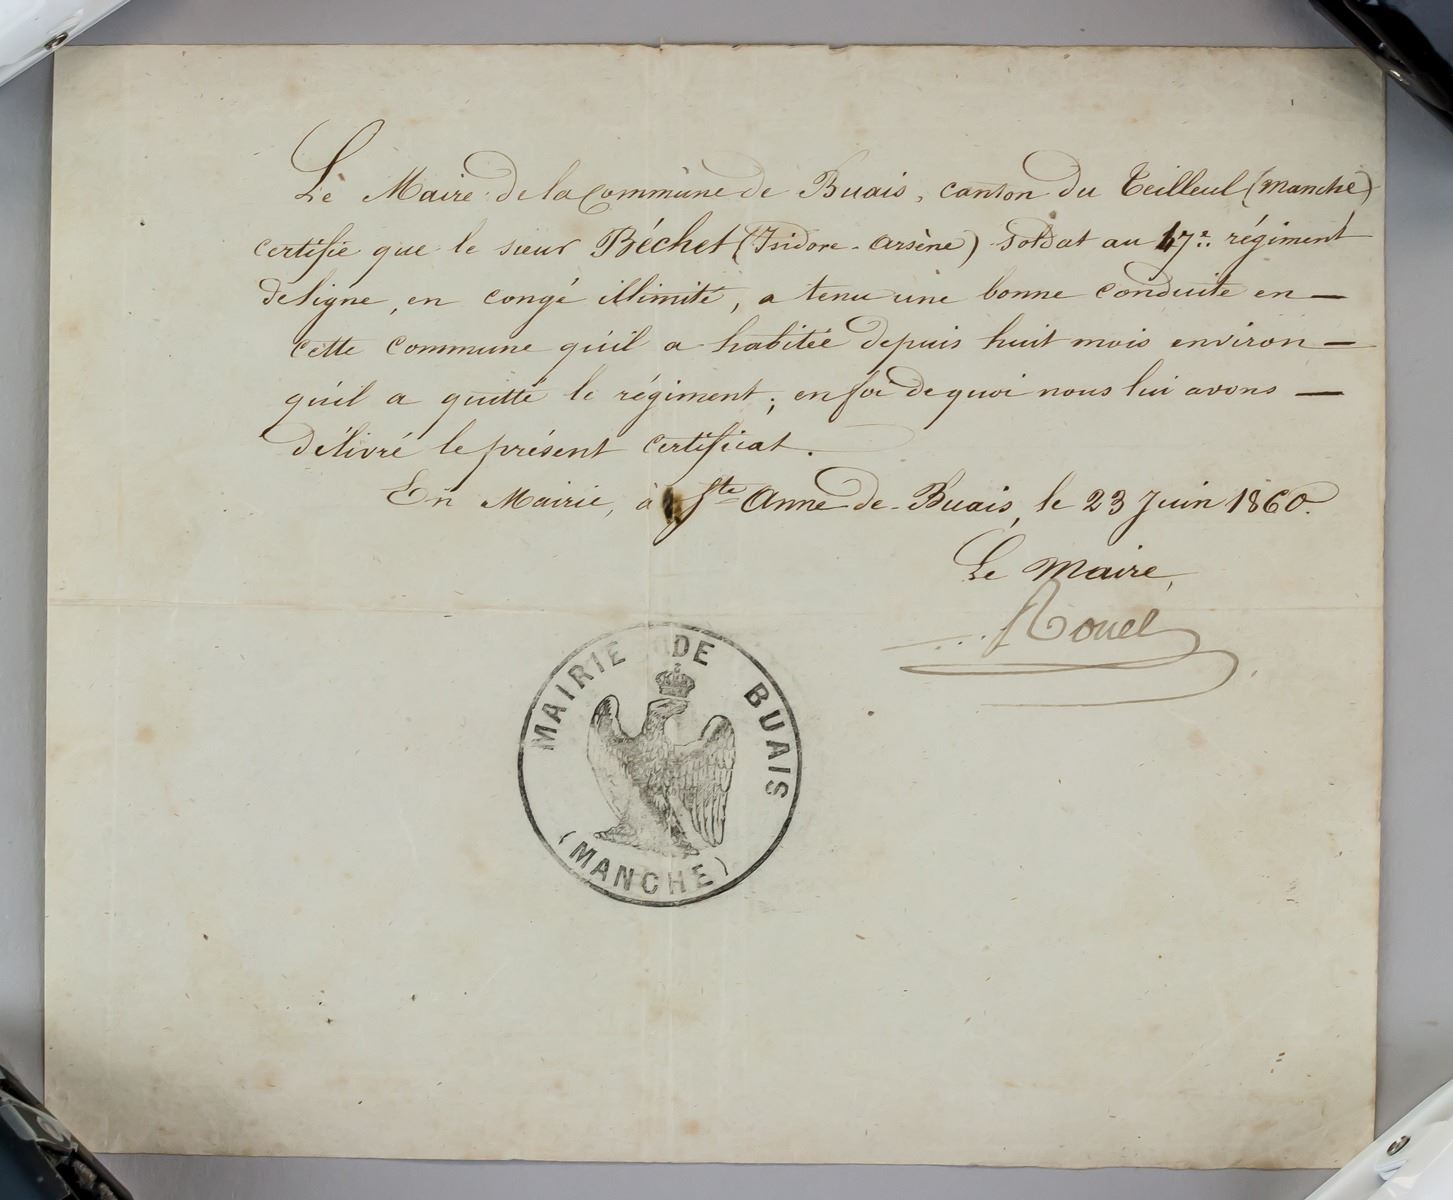 Le Maire de la Commune de Buais, canton du Teilleul (Manche)
certifie que le sieur Béchet (Isidore-Arsène) soldat au 47e. régiment
de ligne, en congé illimité, a tenu une bonne conduite en —
cette commune qu'il a habitée depuis huit mois environ —
qu'il a quitté le régiment; en foi de quoi nous lui avons —
délivré le présent certificat.
En Mairie, à Ste Anne de-Buais, le 23 Juin 1860.
Le Maire,
Rouel
MAIRIE DE BUAIS
(MANCHE)